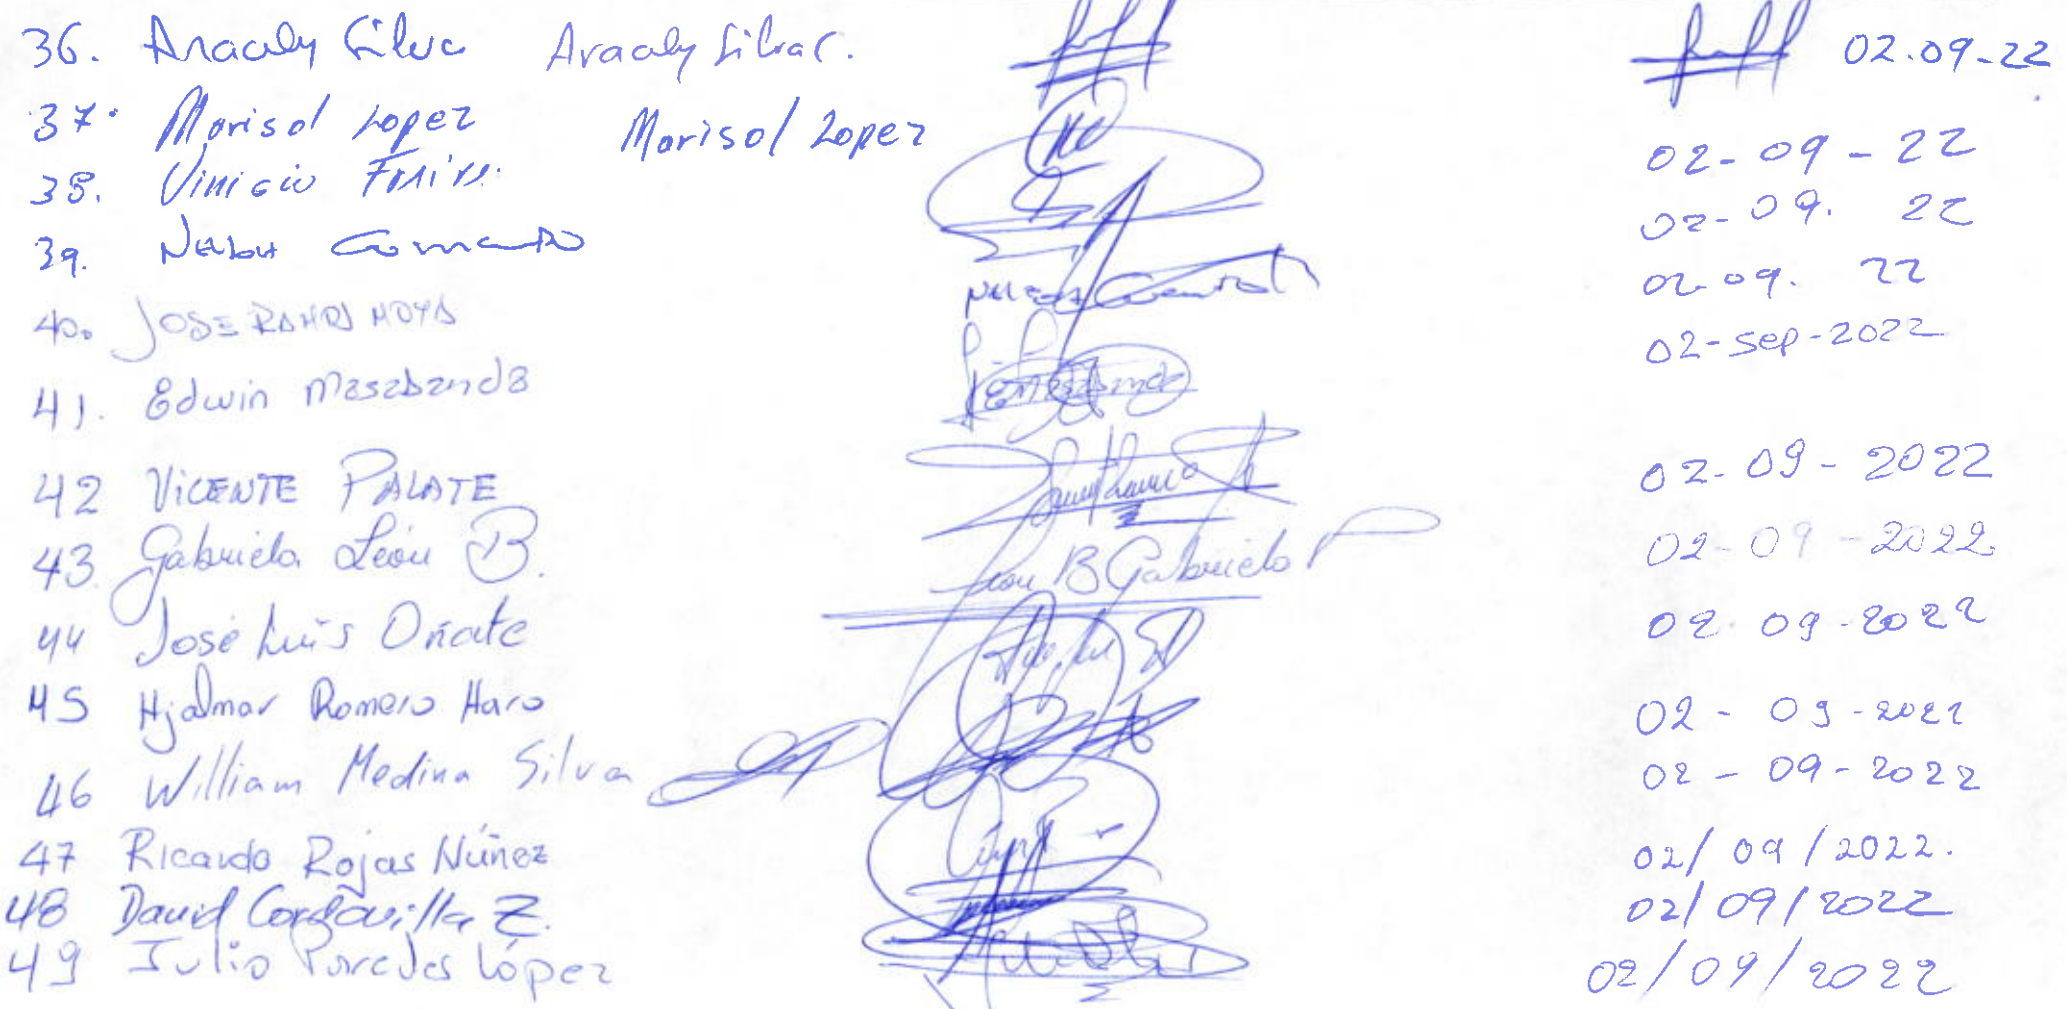 36. Aracely Silva Aracely Silva C. 02.09-22
37. Marisol Lopez Marisol Lopez 02-09-22
38. Vinicio Freire. 02-09. 22
39. 02-09. 22
40. JOSE RAMOS MOYA 02-sep-2022
41. Edwin Masabanda
42 VICENTE PALATE 02-09-2022
43. Gabriela León B. León B Gabriela 02-09-2022
44 José Luis Oñate 02 09-2022
45 Hjalmar Romero Haro 02-09-2022
46 William Medina Silva 02-09-2022
47 Ricardo Rojas Núñez 02/09/2022.
48 David Cordovilla Z. 02/09/2022
49 Julio Paredes López 02/09/2022